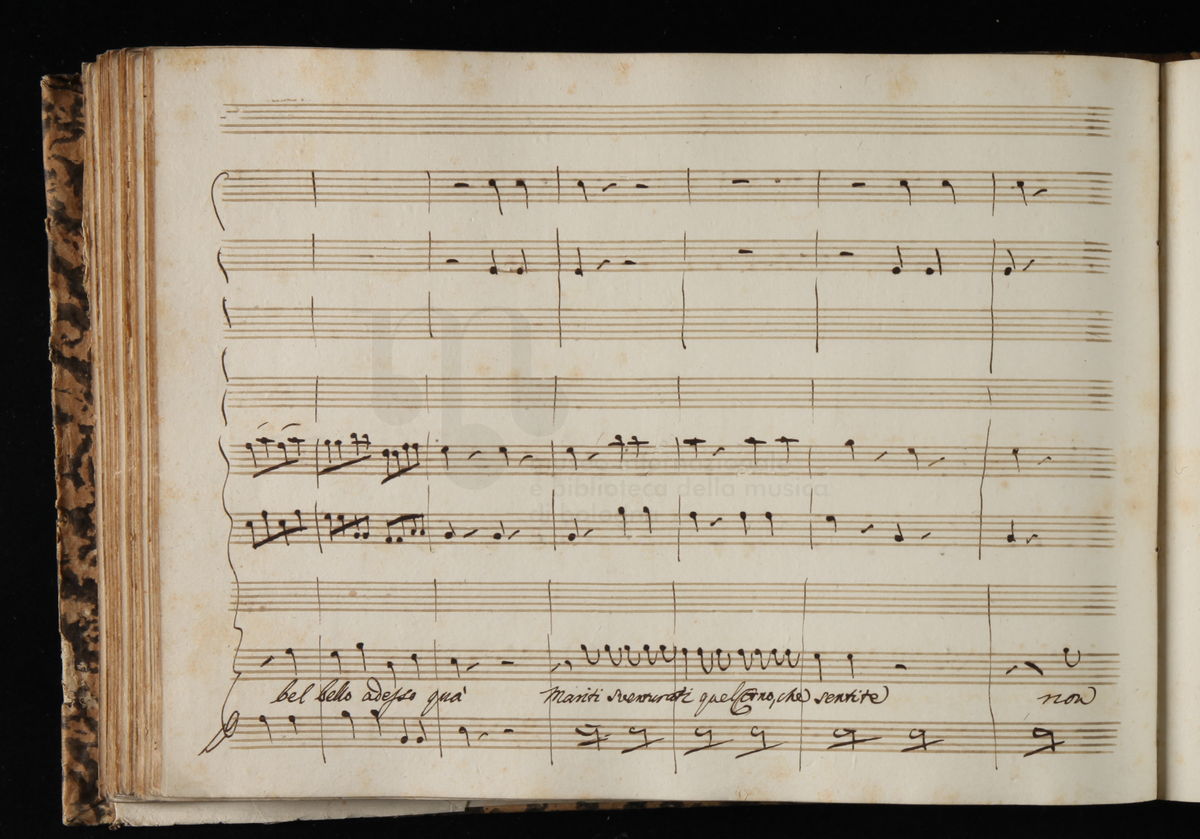 e biblioteca della musica
bel bello adesso quà Mariti sventurati quel corno, che sentite non